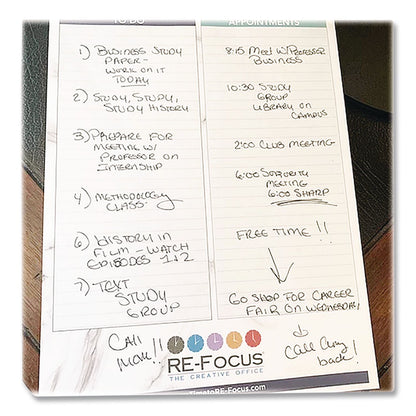 TO DO
1) BUSINESS STUDY
PAPER-
WORK ON IT
TODAY
2) STUDY, STUDY,
STUDY HISTORY
3) PREPARE FOR
MEETING W/
PROFESSOR ON
INTERNSHIP
4) METHODOLOGY
CLASS-
6) HISTORY IN
FILM - WATCH
EPISODES 1+2
7) TEXT
STUDY
GROUP
CALL
MOM!!
APPOINTMENTS
8:15 MEET W/PROFESSOR
BUSINESS
10:30 STUDY
GROUP
LIBRARY ON
CAMPUS
2:00 CLUB MEETING
6:00 SORORITY
MEETING
6:00 SHARP
FREE TIME!!
GO SHOP FOR CAREER
FAIR ON WEDNESDAY!
CALL
back!
RE-FOCUS
THE CREATIVE OFFICE
TimetoRE-Focus.com